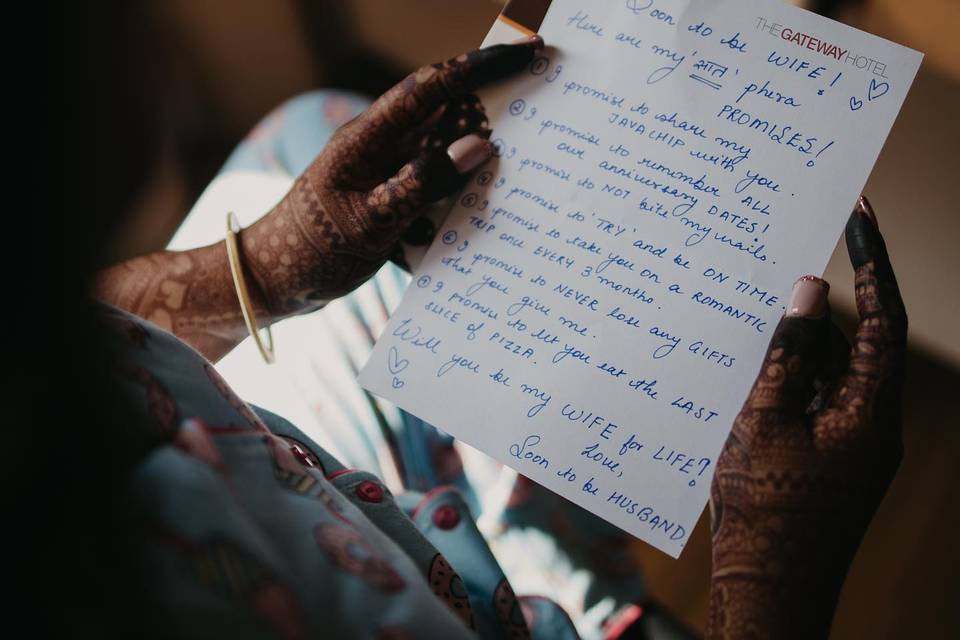 THE GATEWAY HOTEL
Soon to be WIFE!
Here are my 'सात' phera
PROMISES!
① I promise to share my
JAVA CHIP with you.
② I promise to remember ALL
our anniversary DATES!
③ I promise to NOT bite my nails.
④ I promise to 'TRY' and be ON TIME.
⑤ I promise to take you on a ROMANTIC
TRIP once EVERY 3 months.
⑥ I promise to NEVER lose any GIFTS
that you give me.
⑦ I promise to let you eat the LAST
SLICE of PIZZA.
Will you be my WIFE for LIFE?
Love,
Soon to be HUSBAND.